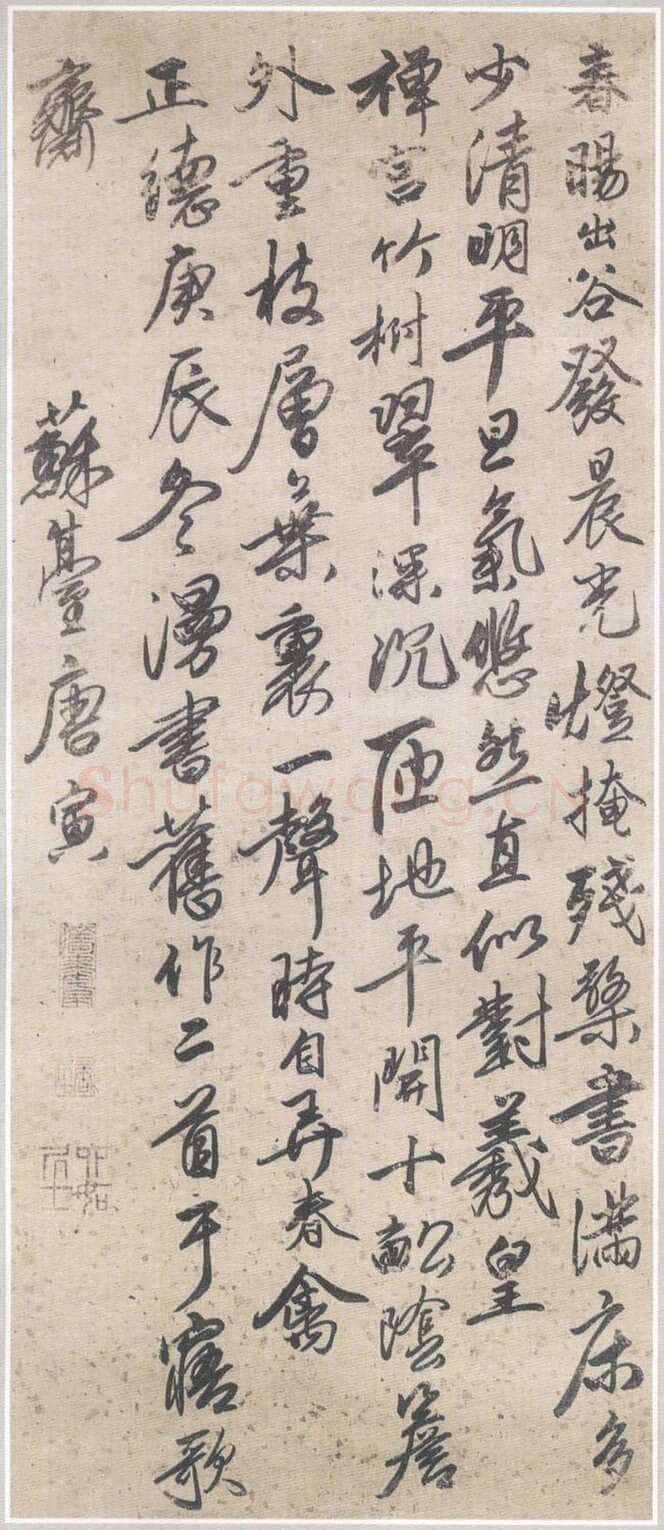 春暘出谷發晨光燈掩殘檠書滿床多
少清明平旦氣悠然直似對羲皇
禅宫竹樹翠深沉匝地平開十畝陰簷
外重枝層葉裏一聲時自弄春禽
正德庚辰冬漫書舊作二首于寤歌
齋 蘇臺唐寅
六如居士
Shufawang.CN